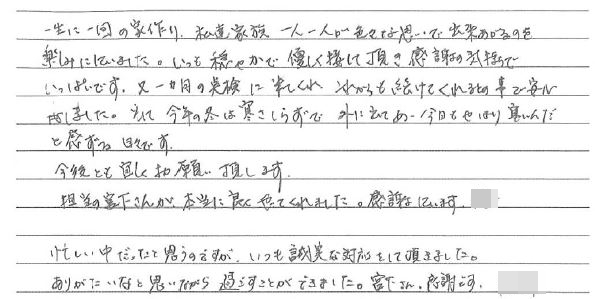 一生に一回の家作り、私達家族一人一人が色々な思いで出来あがるのを
楽しみにしていました。いつも穏やかで優しく接して頂き感謝の気持で
いっぱいです。又一カ月の点検に来てくれ、これからも続けてくれるとの事で安心
致しました。そして今年の冬は寒さしらずで外に出てあー今日もやはり寒いんだ
と感ずる日々です。
今後とも宜しくお願い頂します。
担当の宮下さんが本当に良くやってくれました。感謝しています。
忙しい中だったと思うのですが、いつも誠実な対応をして頂きました。
ありがたいなと思いながら過ごすことができました。宮下さん、感謝です。